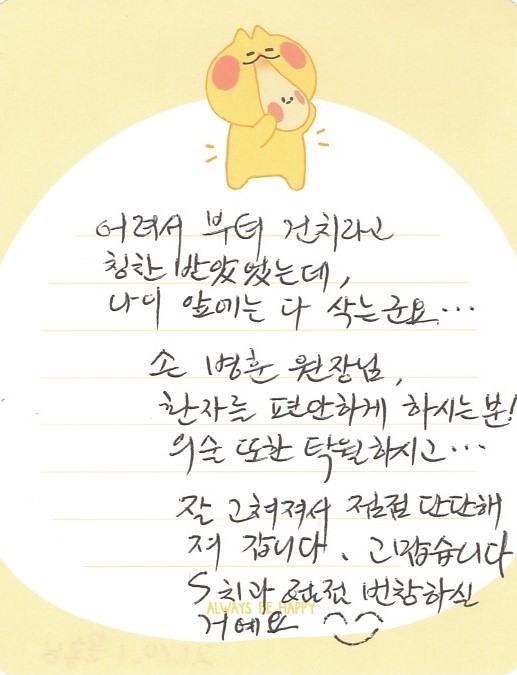 어려서 부터 건치라고
칭찬 받았었는데,
나이 앞에는 다 삭는군요...
손병훈 원장님,
환자를 편안하게 하시는분!
의술 또한 탁월하시고...
잘 고쳐져서 점점 단단해
져 갑니다. 고맙습니다
S치과 점점 번창하실
ALWAYS BE HAPPY
거예요